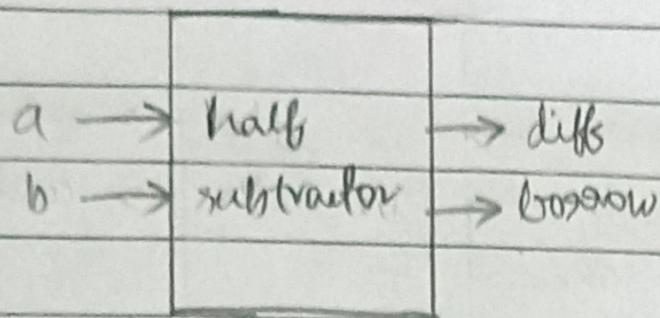 a → half → diff
b → subtractor → borrow